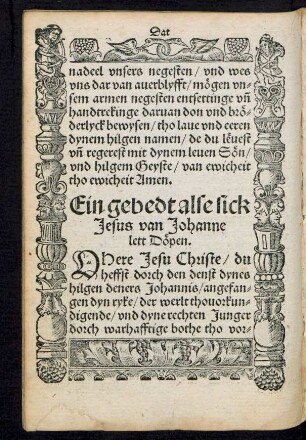 Dat
nadeel vnsers negesten/ vnd wes
vns dar van auerblyfft/ mögen vn-
sem armen negesten entsettinge vñ
handtrekinge daruan don vnd brö-
derlyck bewysen/ tho laue vnd eeren
dynem hilgen namen/ de du leuest
vñ regerest mit dynem leuen Sön/
vnd hilgem Geyste/ van ewicheit
tho ewicheit Amen.
Ein gebedt alse sick
Jesus van Johanne
lett Döpen.
O Here Jesu Christe/ du
heffst dorch den denst dynes
hilgen deners Johannis/ angefan-
gen dyn ryke/ der werlt thouorkun-
digende/ vnd dyne rechten Junger
dorch warhafftige bothe tho vor-